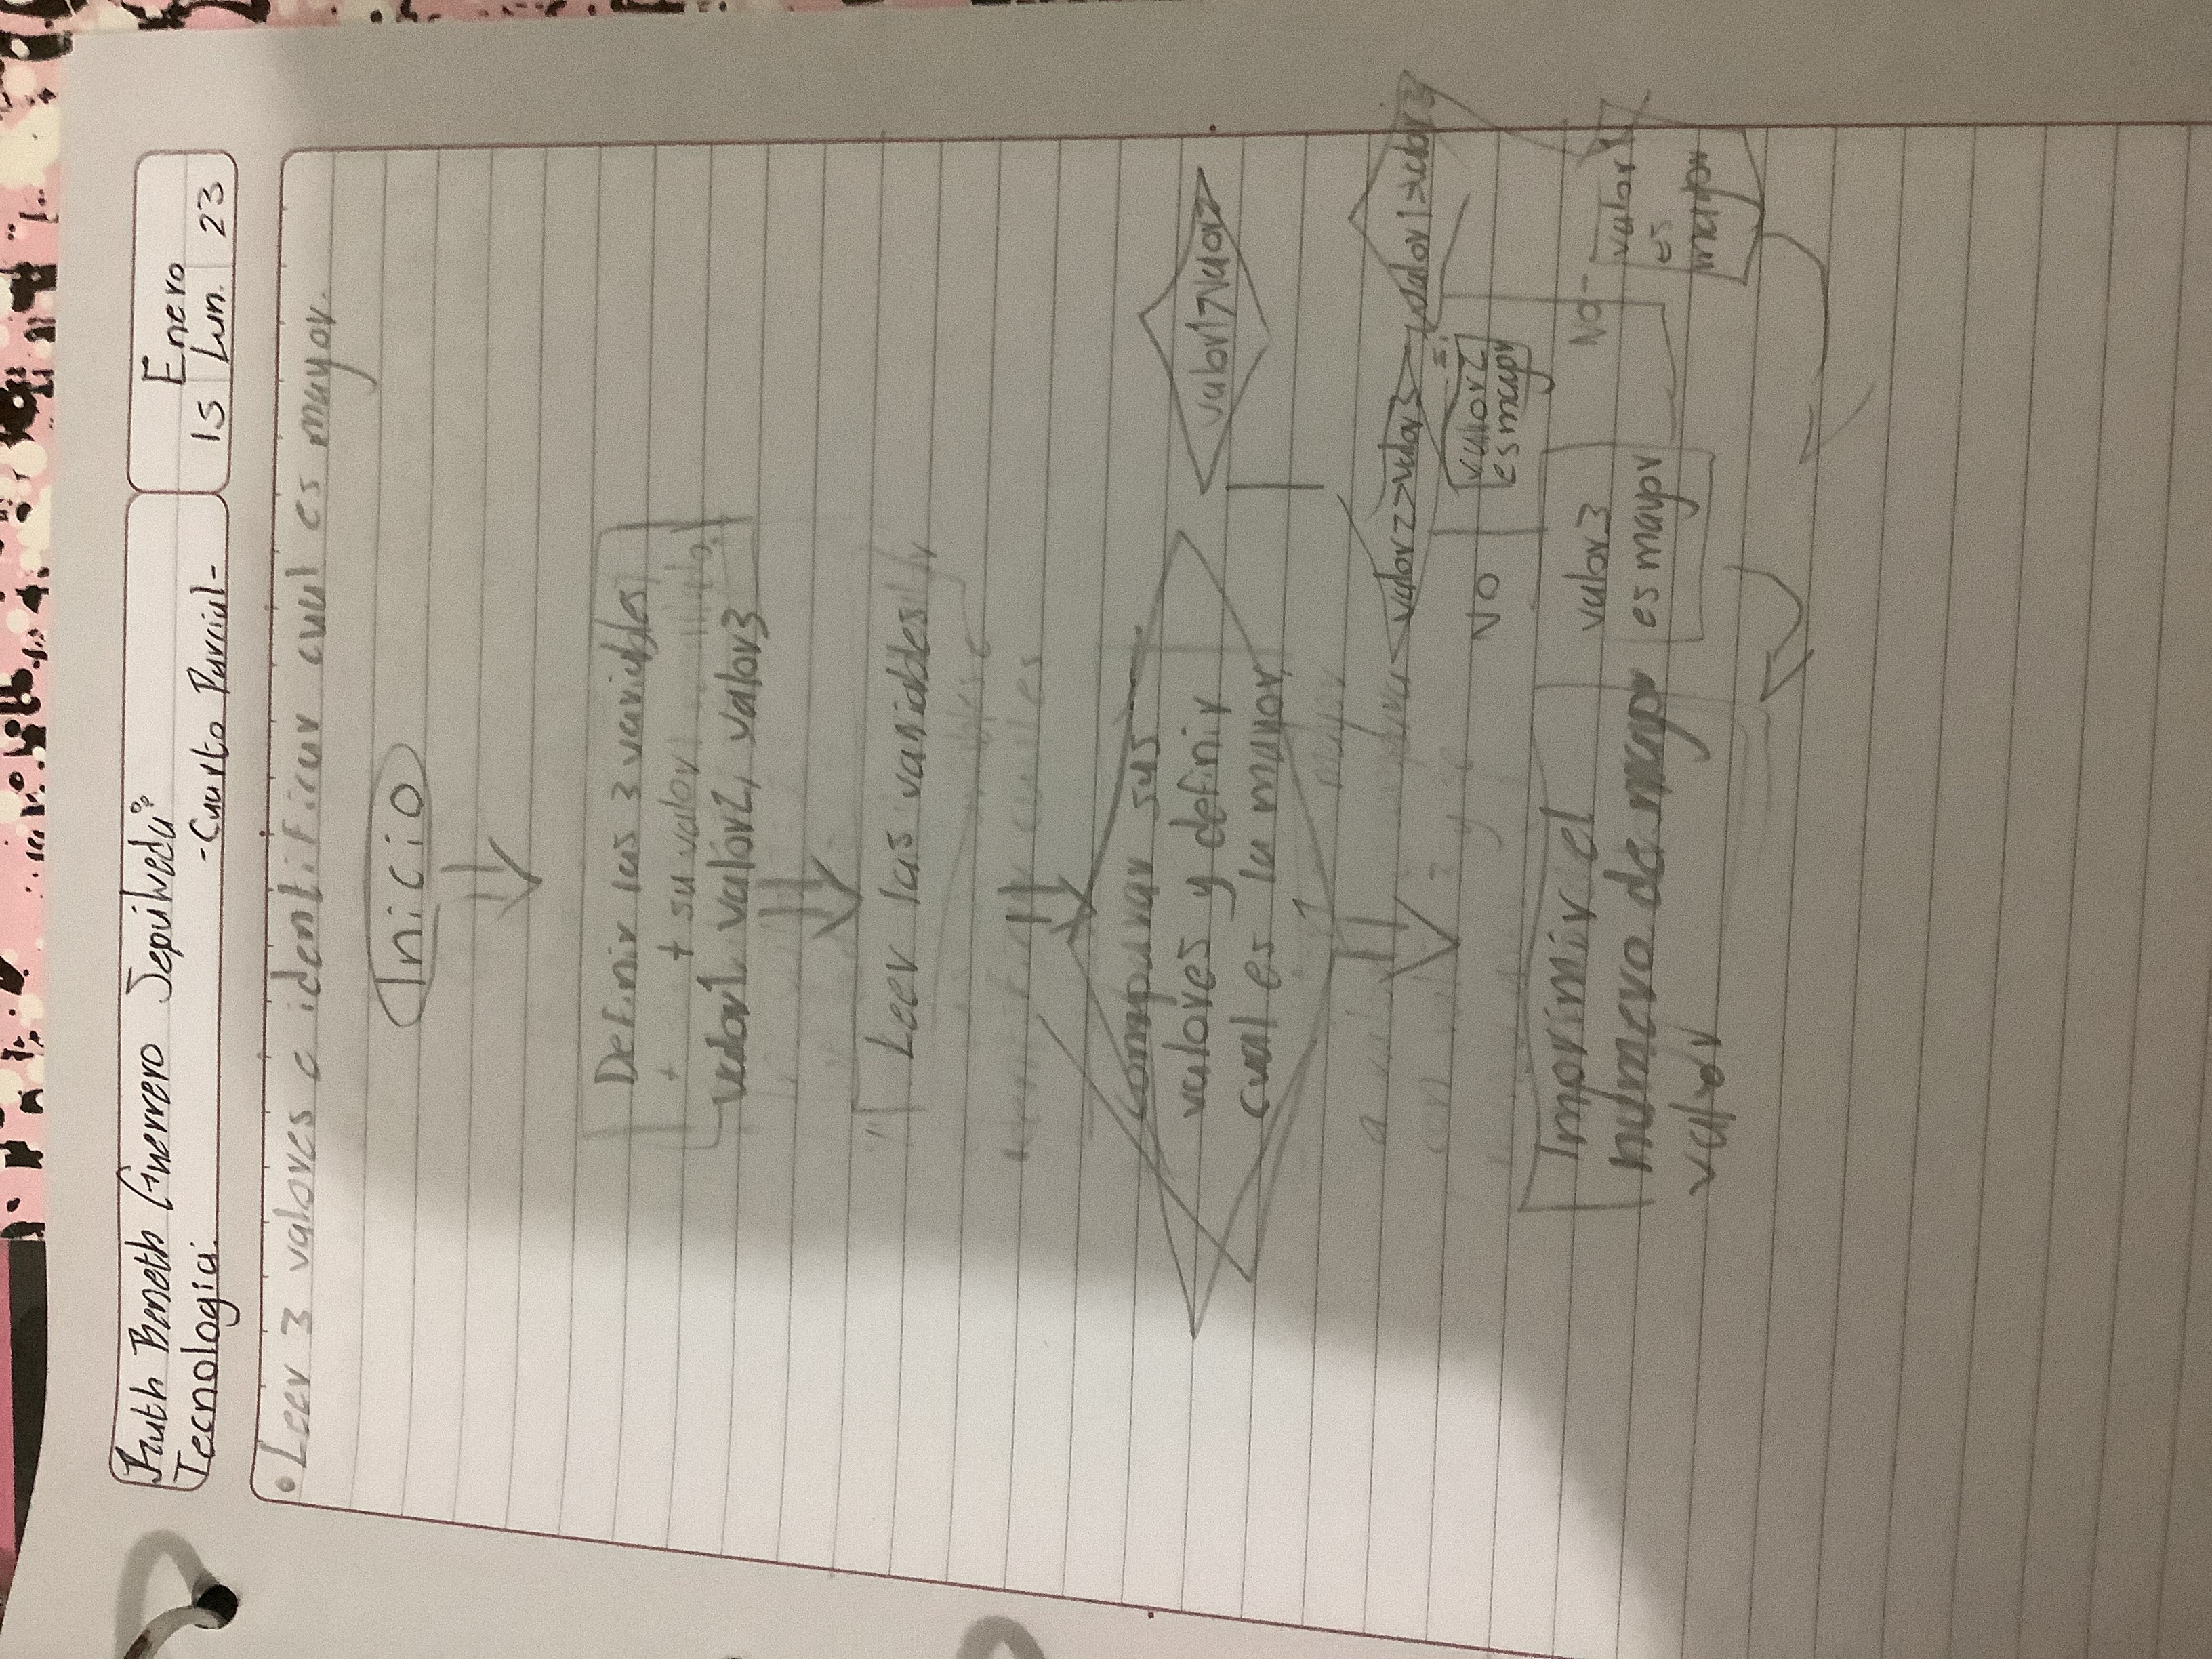 Guerrero Sepulveda
Tecnologia. -Cuarto Parcial-
Enero
15 Lun. 23
• Leer 3 valores e identificar cual es mayor.
Inicio
Definir las 3 variables
+ su valor
valor1, valor2, valor3
Leer las variables
comparar sus
valores y definir
cual es la mayor
Imprimir el
numero de mayor
valor
valor1>valor2
valor2>valor3
valor1>valor3
si
valor2
es mayor
NO
valor3
es mayor
NO-
valor1
es
mayor